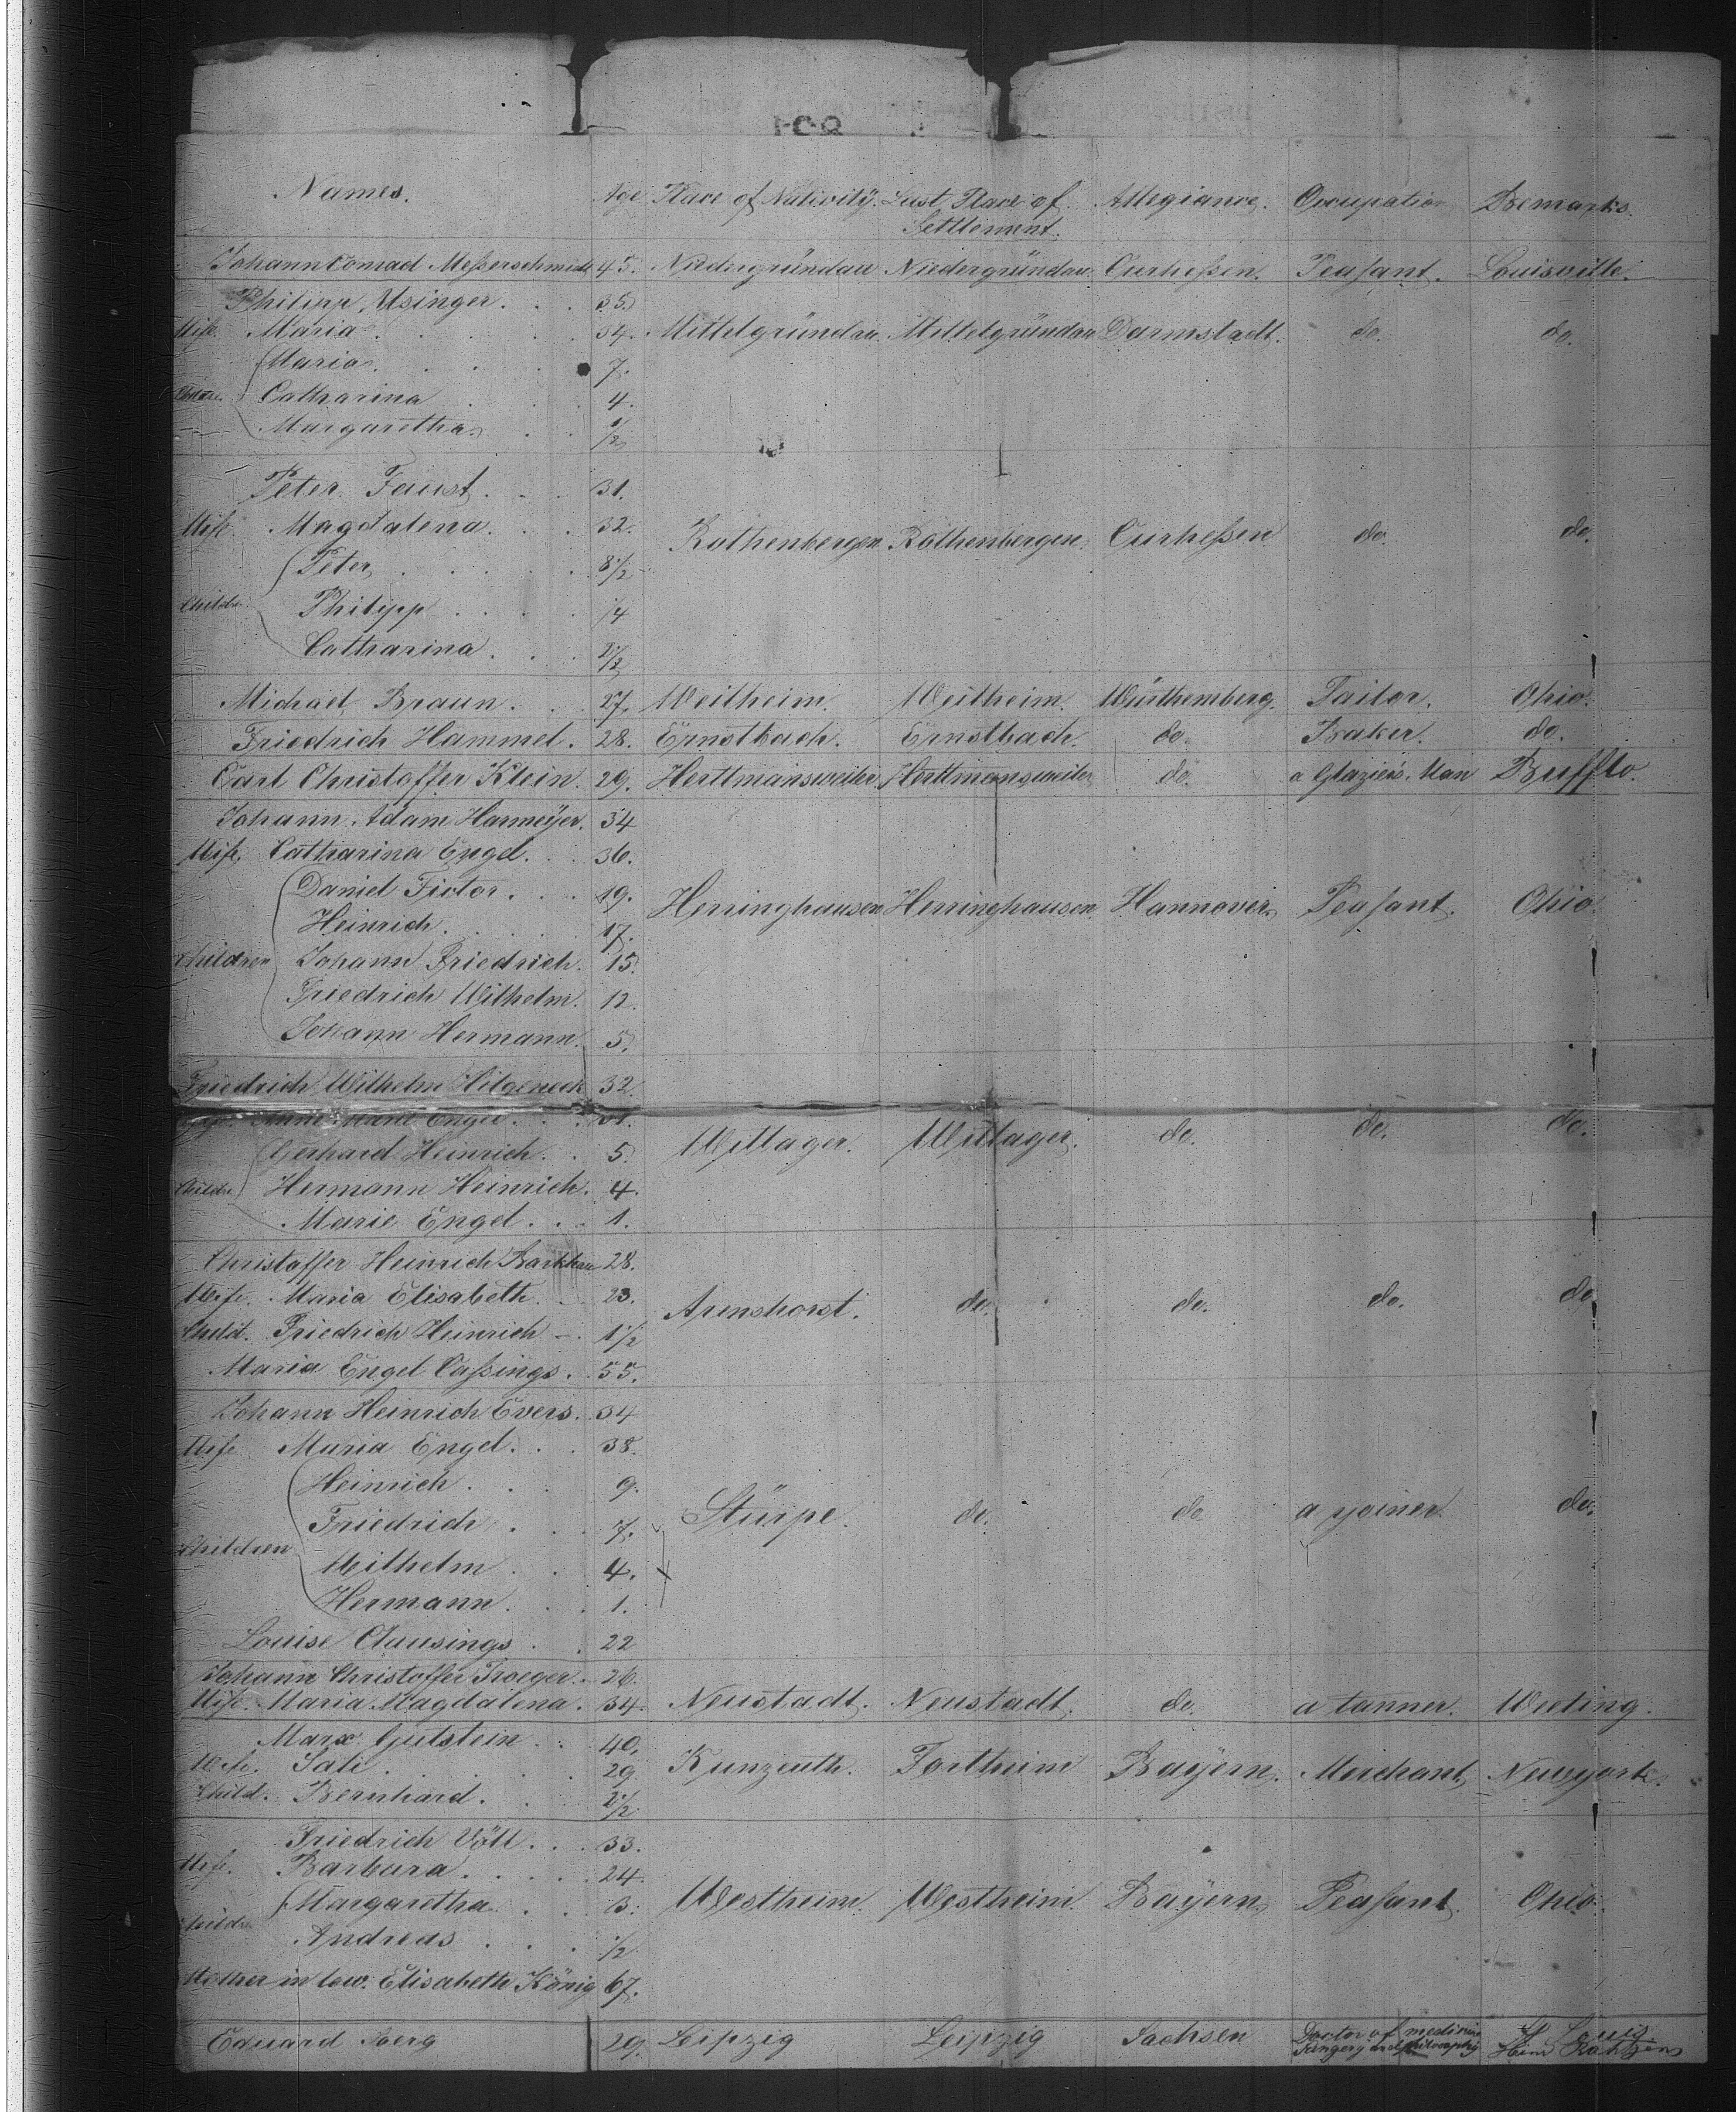 Names. Age Place of Nativity. Last Place of Settlement. Allegiance. Occupation Remarks.
Johann Conrad Meßerschmidt 45. Niedergründau Niedergründau. Curheßen. Peasant. Louisville.
Philipp Usinger. 35.
Wife. Maria. 34. Mittelgründau. Mittelgründau Darmstadt. do. do.
Maria. 7.
Catharina 4.
Margaretha. 1/2
Peter Faust. 31.
Wife. Magdalena. 32. Rothenbergen Rothenbergen. Curheßen do. do.
Peter, 8 1/2
Childr. Philipp 4
Catharina. 2 1/2
Michael Braun. 27. Weilheim. Weilheim. Würthemberg. Tailor. Ohio.
Friedrich Hammel. 28. Ernstbach. Ernstbach. do. Baker. do.
Carl Christoffer Klein. 29. Herttmansweiler. Herttmansweiler do. a Glazier's. Man Bufflo.
Johann Adam Harmeÿer. 34
Wife. Catharina Engel. 36.
Daniel Fictor. 19. Herringhausen Herringhausen Hannover. Peasant. Ohio.
Heinrich. 17.
Children Johann Friedrich. 15.
Friedrich Wilhelm. 12.
Johann Hermann. 5.
Friedrich Wilhelm Hilgeneck 32.
Engel.
Gerhard Heinrich. 5. Wittager. Wittager. do. do. do.
Childre Hermann Heinrich. 4.
Marie Engel. 1.
Christoffer Heinrich Barkhau 28.
Wife. Maria Elisabeth. 23. Arenshorst. do. do. do. do
Child. Friedrich Heinrich 1 1/2
Maria Engel Caßings. 55.
Johann Heinrich Evers. 34
Wife Maria Engel. 38.
Heinrich. 9.
Friedrich. 7. Stürpe. do. do a yoiner. do.
Children Wilhelm 4.
Hermann. 1.
Louise Clausings. 22
Johann Christoffer Troeger. 26.
Wife. Maria Magdalena. 34. Neustadt. Neustadt. do. a tanner. Weeling.
Marx Gutstein. 40.
Wife. Sali. 29. Kunzeuth. Fortheim Baÿern. Merchant, Newyork.
Child. Bernhard. 2 1/2
Friedrich Völl. 33.
Wife. Barbara. 24.
Margaretha. 3. Westheim. Westheim. Baÿern, Peasant. Ohio.
Childr Andreas 1/2
Mother in law. Elisabeth König 67.
Eduard 29. Leipzig Leipzig Sachsen Doctor of medicin Surgery and philosophy St Louis